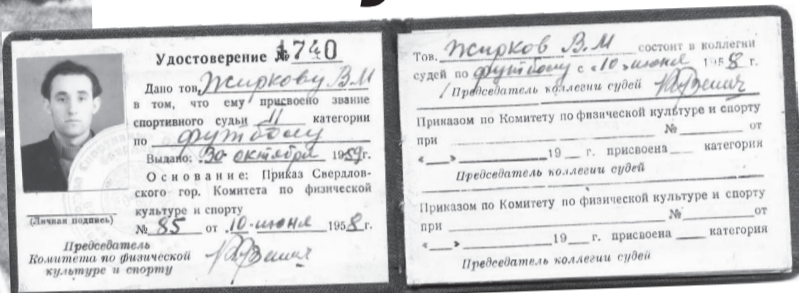 Удостоверение № 1740
Дано тов. Жиркову В.М
в том, что ему присвоено звание
спортивного судьи II категории
по футболу
Выдано: „30 октября 1959г.
Основание: Приказ Свердлов-
ского гор. Комитета по физической
культуре и спорту
№ 85 от „10„ июня 1958г.
(Личная подпись)
Председатель
Комитета по физической
культуре и спорту
Тов. Жирков В.М состоит в коллегии
судей по футболу с «10„ июня 1958 г.
Председатель коллегии судей
Приказом по Комитету по физической культуре и спорту
при № от
« » 19 г. присвоена категория
Председатель коллегии судей
Приказом по Комитету по физической культуре и спорту
при № от
« » 19 г. присвоена категория
Председатель коллегии судей